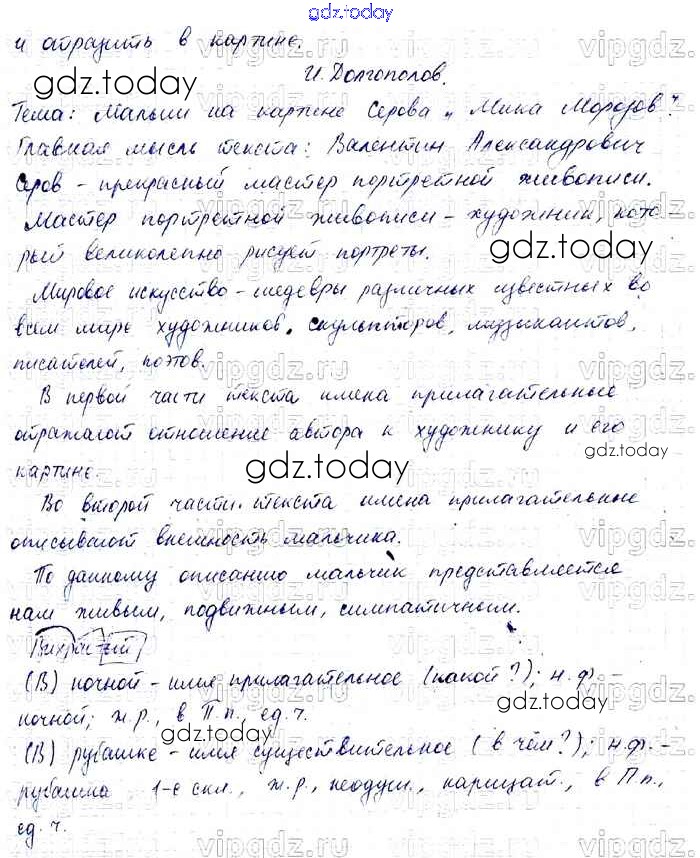 gdz.today
и отразить в картине.
И. Долгополов.
Тема: Малыш на картине Серова „Мика Морозов".
Главная мысль текста: Валентин Александрович
Серов - прекрасный мастер портретной живописи.
Мастер портретной живописи - художник, кото-
рый великолепно рисует портреты.
Мировое искусство - шедевры различных известных во
всем мире художников, скульпторов, музыкантов,
писателей, поэтов.
В первой части текста имена прилагательные
отражают отношение автора к художнику и его
картине.
Во второй части текста имена прилагательные
описывают внешность мальчика.
По данному описанию мальчик представляется
нам живым, подвижным, симпатичным.
Вихрастый
(В) ночной - имя прилагательное (какой?); н.ф.
ночной; ж.р., в П.п., ед.ч.
(В) рубашке - имя существительное (в чём?); н.ф. -
рубашка, 1-е скл., ж.р., неодуш., нарицат., в П.п.,
ед.ч.